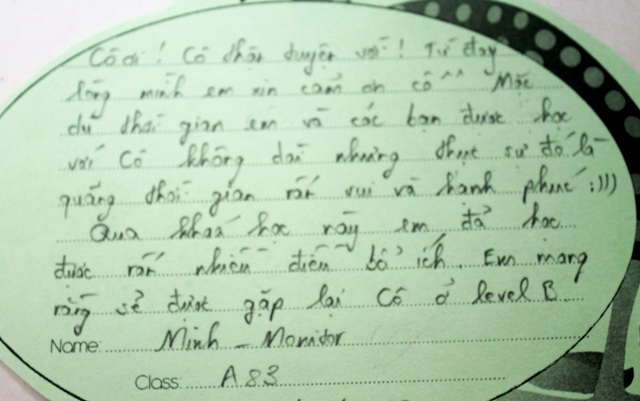 Cô ơi! Cô thân duyện với! Từ đáy
lòng mình em xin cảm ơn cô ^^ Mặc
dù thời gian em và các bạn được học
với Cô không dài nhưng thực sự đó là
quãng thời gian rất vui và hạnh phúc :)))
Qua khoá học này em đã học
được rất nhiều điều bổ ích. Em mong
rằng sẽ được gặp lại Cô ở level B
Name: Minh - Monitor
Class: A83